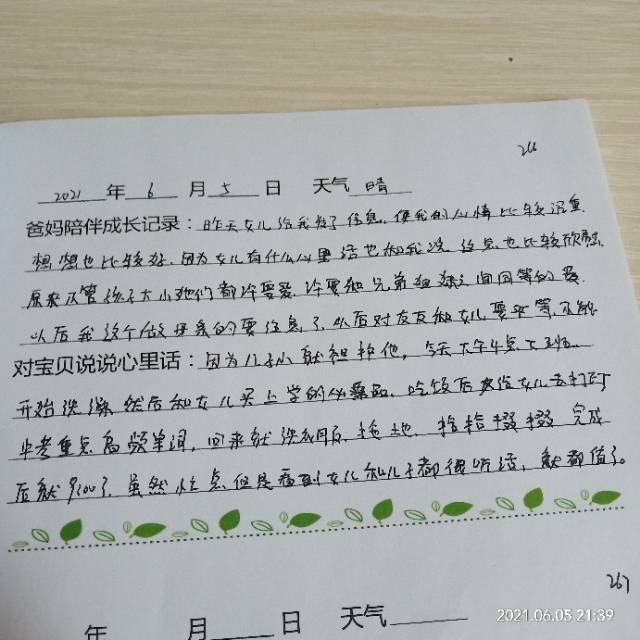 266
2021 年 6 月 5 日 天气 晴
爸妈陪伴成长记录：昨天女儿给我发了信息，使我的心情比较沉重。
想想也比较好，因为女儿有什么心里话也和我说，这点也比较欣慰。
原来不管孩子大小她们都许要爱，许要和兄弟姐妹之间同等的爱。
以后我这个做母亲的要注意了，以后对友友和女儿要平等，不能
对宝贝说说心里话：因为儿子小就袒护他，今天下午4点下班
开始洗澡，然后和女儿买上学的必需品，吃饭后来给女儿去打印
中考重点高频单词，回来就洗衣服，拖地，拾拾掇掇完成
后就9:00了，虽然忙点但是看到女儿和儿子都很听话，就都值了。
267
年 月 日 天气
2021.06.05 21:39